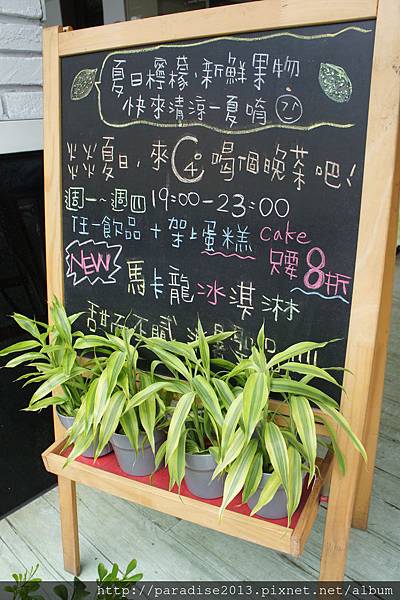 夏日檸檬,新鮮果物
快來清涼一夏唷
炎炎夏日,來C4喝個晚茶吧!
週一~週四 19:00-23:00
任一飲品 + 架上蛋糕 cake
只要8折
NEW
馬卡龍冰淇淋
甜而不膩
http://paradise2013.pixnet.net/album